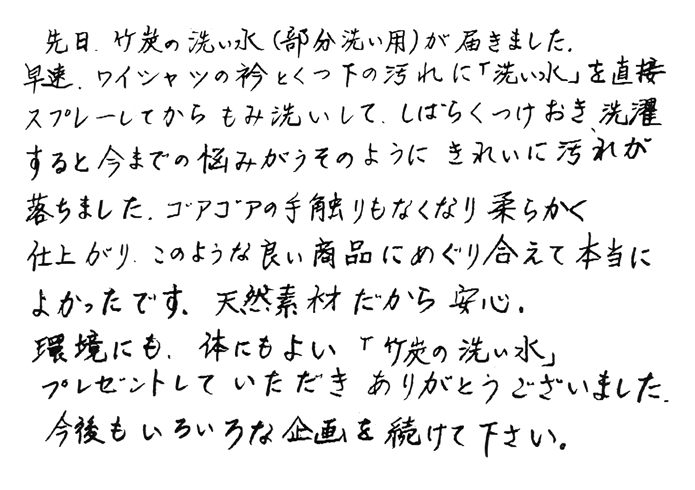 先日、竹炭の洗い水(部分洗い用)が届きました。
早速、ワイシャツの衿とくつ下の汚れに「洗い水」を直接
スプレーしてからもみ洗いして、しばらくつけおき、洗濯
すると今までの悩みがうそのようにきれいに汚れが
落ちました。ゴアゴアの手触りもなくなり柔らかく
仕上がり、このような良い商品にめぐり合えて本当に
よかったです。天然素材だから安心。
環境にも、体にもよい「竹炭の洗い水」
プレゼントしていただきありがとうございました。
今後もいろいろな企画を続けて下さい。